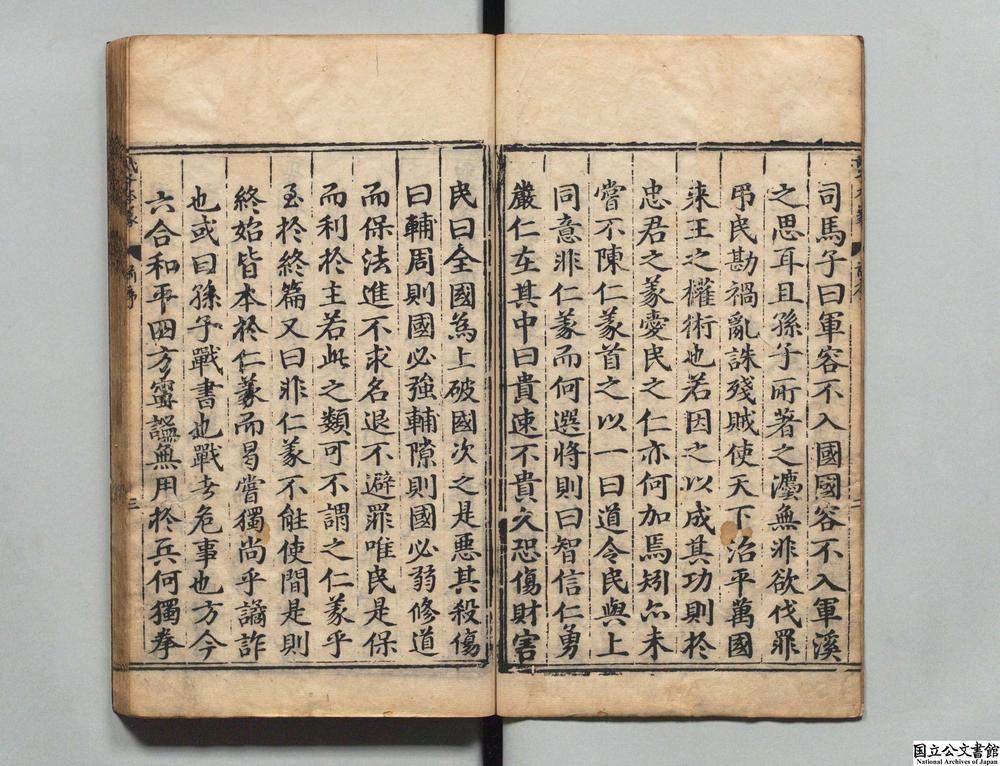 司馬子曰軍容不入國國容不入軍溪
之思耳且孫子所著之灋無非欲伐罪
弔民勘禍亂誅殘賊使天下治平萬國
來王之權術也若因之以成其功則於
忠君之義愛民之仁亦何加焉矧亦未
嘗不陳仁義首之以一曰道令民與上
同意非仁義而何選將則曰智信仁勇
嚴仁在其中曰貴速不貴久恐傷財害
民曰全國爲上破國次之是惡其殺傷
曰輔周則國必強輔隙則國必弱修道
而保法進不求名退不避罪唯民是保
而利於主若此之類可不謂之仁義乎
至於終篇又曰非仁義不能使間是則
終始皆本於仁義而曷嘗獨尚乎譎詐
也或曰孫子戰書也戰者危事也方今
六合和平四方寧謐無用於兵何獨拳
三
国立公文書館
National Archives of Japan